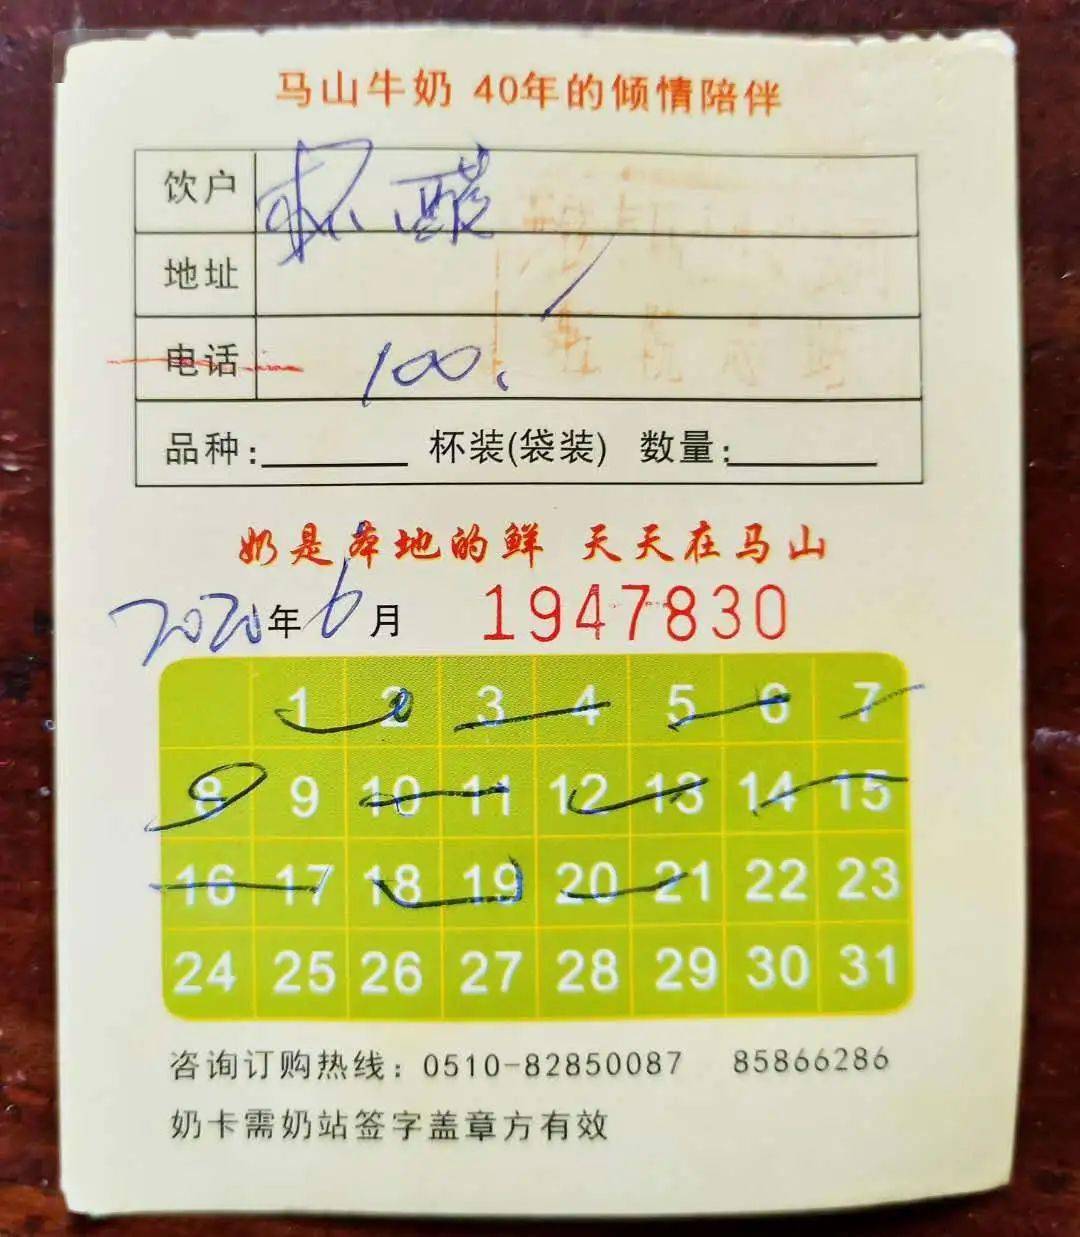 马山牛奶 40年的倾情陪伴
饮户 杯酸
地址
电话 100.
品种: 杯装(袋装) 数量:
奶是本地的鲜 天天在马山
2020年6月 1947830
1 2 3 4 5 6 7
8 9 10 11 12 13 14 15
16 17 18 19 20 21 22 23
24 25 26 27 28 29 30 31
咨询订购热线: 0510-82850087 85866286
奶卡需奶站签字盖章方有效